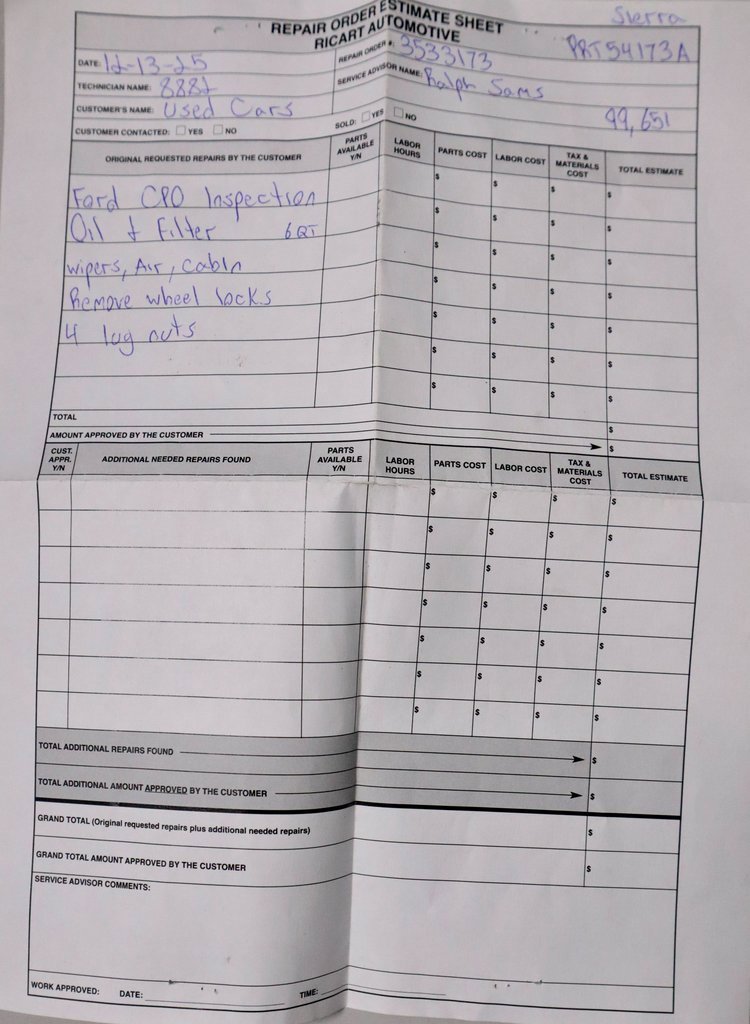 Sierra
REPAIR ORDER ESTIMATE SHEET
RICART AUTOMOTIVE
PRT54173A
DATE: 12-13-25
REPAIR ORDER #: 3533173
TECHNICIAN NAME: 8882
SERVICE ADVISOR NAME: Ralph Sams
CUSTOMER'S NAME: Used Cars
99,651
CUSTOMER CONTACTED: YES NO
SOLD: YES NO
ORIGINAL REQUESTED REPAIRS BY THE CUSTOMER
PARTS AVAILABLE Y/N
LABOR HOURS
PARTS COST
LABOR COST
TAX & MATERIALS COST
TOTAL ESTIMATE
Ford CPO Inspection $ $ $ $
Oil & Filter 6QT $ $ $ $
wipers, Air, Cabin $ $ $ $
Remove wheel locks $ $ $ $
4 lug nuts $ $ $ $
$ $ $ $
$ $ $ $
TOTAL $
AMOUNT APPROVED BY THE CUSTOMER $
CUST. APPR. Y/N
ADDITIONAL NEEDED REPAIRS FOUND
PARTS AVAILABLE Y/N
LABOR HOURS
PARTS COST
LABOR COST
TAX & MATERIALS COST
TOTAL ESTIMATE
$ $ $ $
$ $ $ $
$ $ $ $
$ $ $ $
$ $ $ $
$ $ $ $
$ $ $ $
TOTAL ADDITIONAL REPAIRS FOUND $
TOTAL ADDITIONAL AMOUNT APPROVED BY THE CUSTOMER $
GRAND TOTAL (Original requested repairs plus additional needed repairs) $
GRAND TOTAL AMOUNT APPROVED BY THE CUSTOMER $
SERVICE ADVISOR COMMENTS:
WORK APPROVED: DATE: TIME: